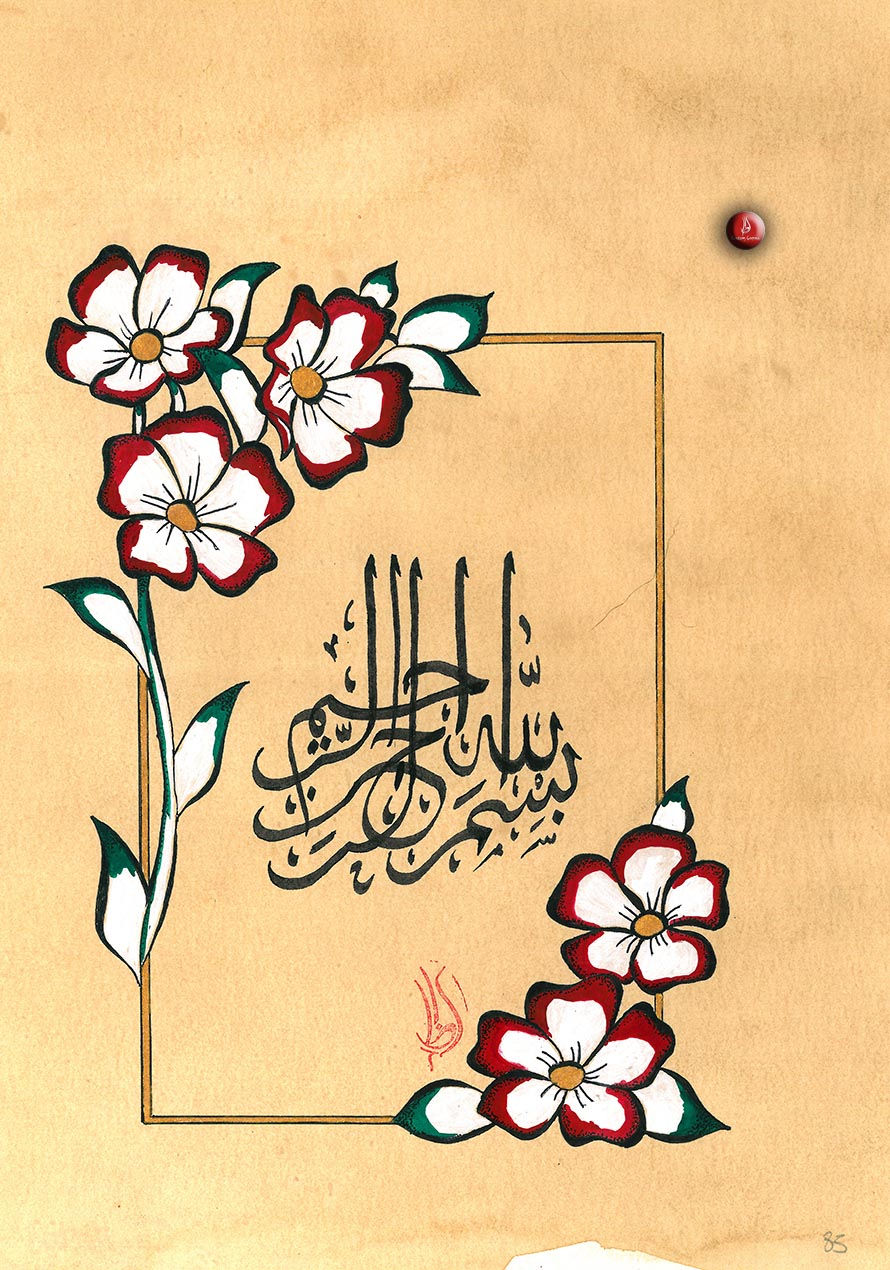 بِسْمِ اللّٰهِ الرَّحْمٰنِ الرَّحِيمِ
85